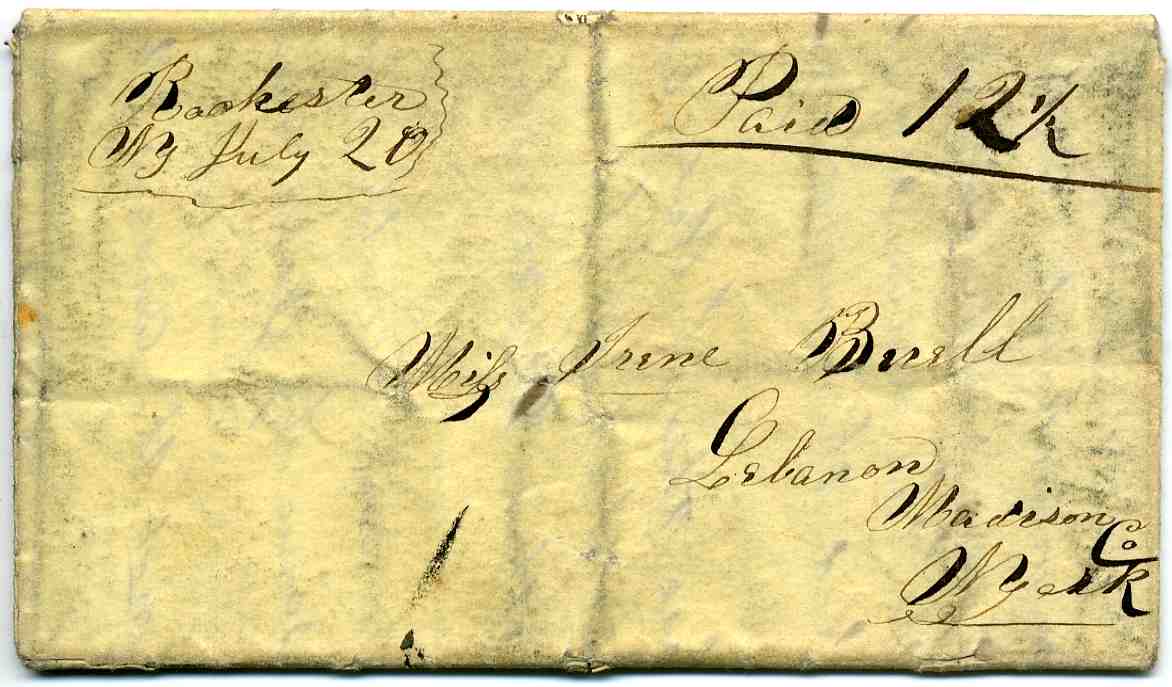 Rochester
NY July 20
Paid 12½
Miss Irene Buell
Lebanon
Madison Co
N York